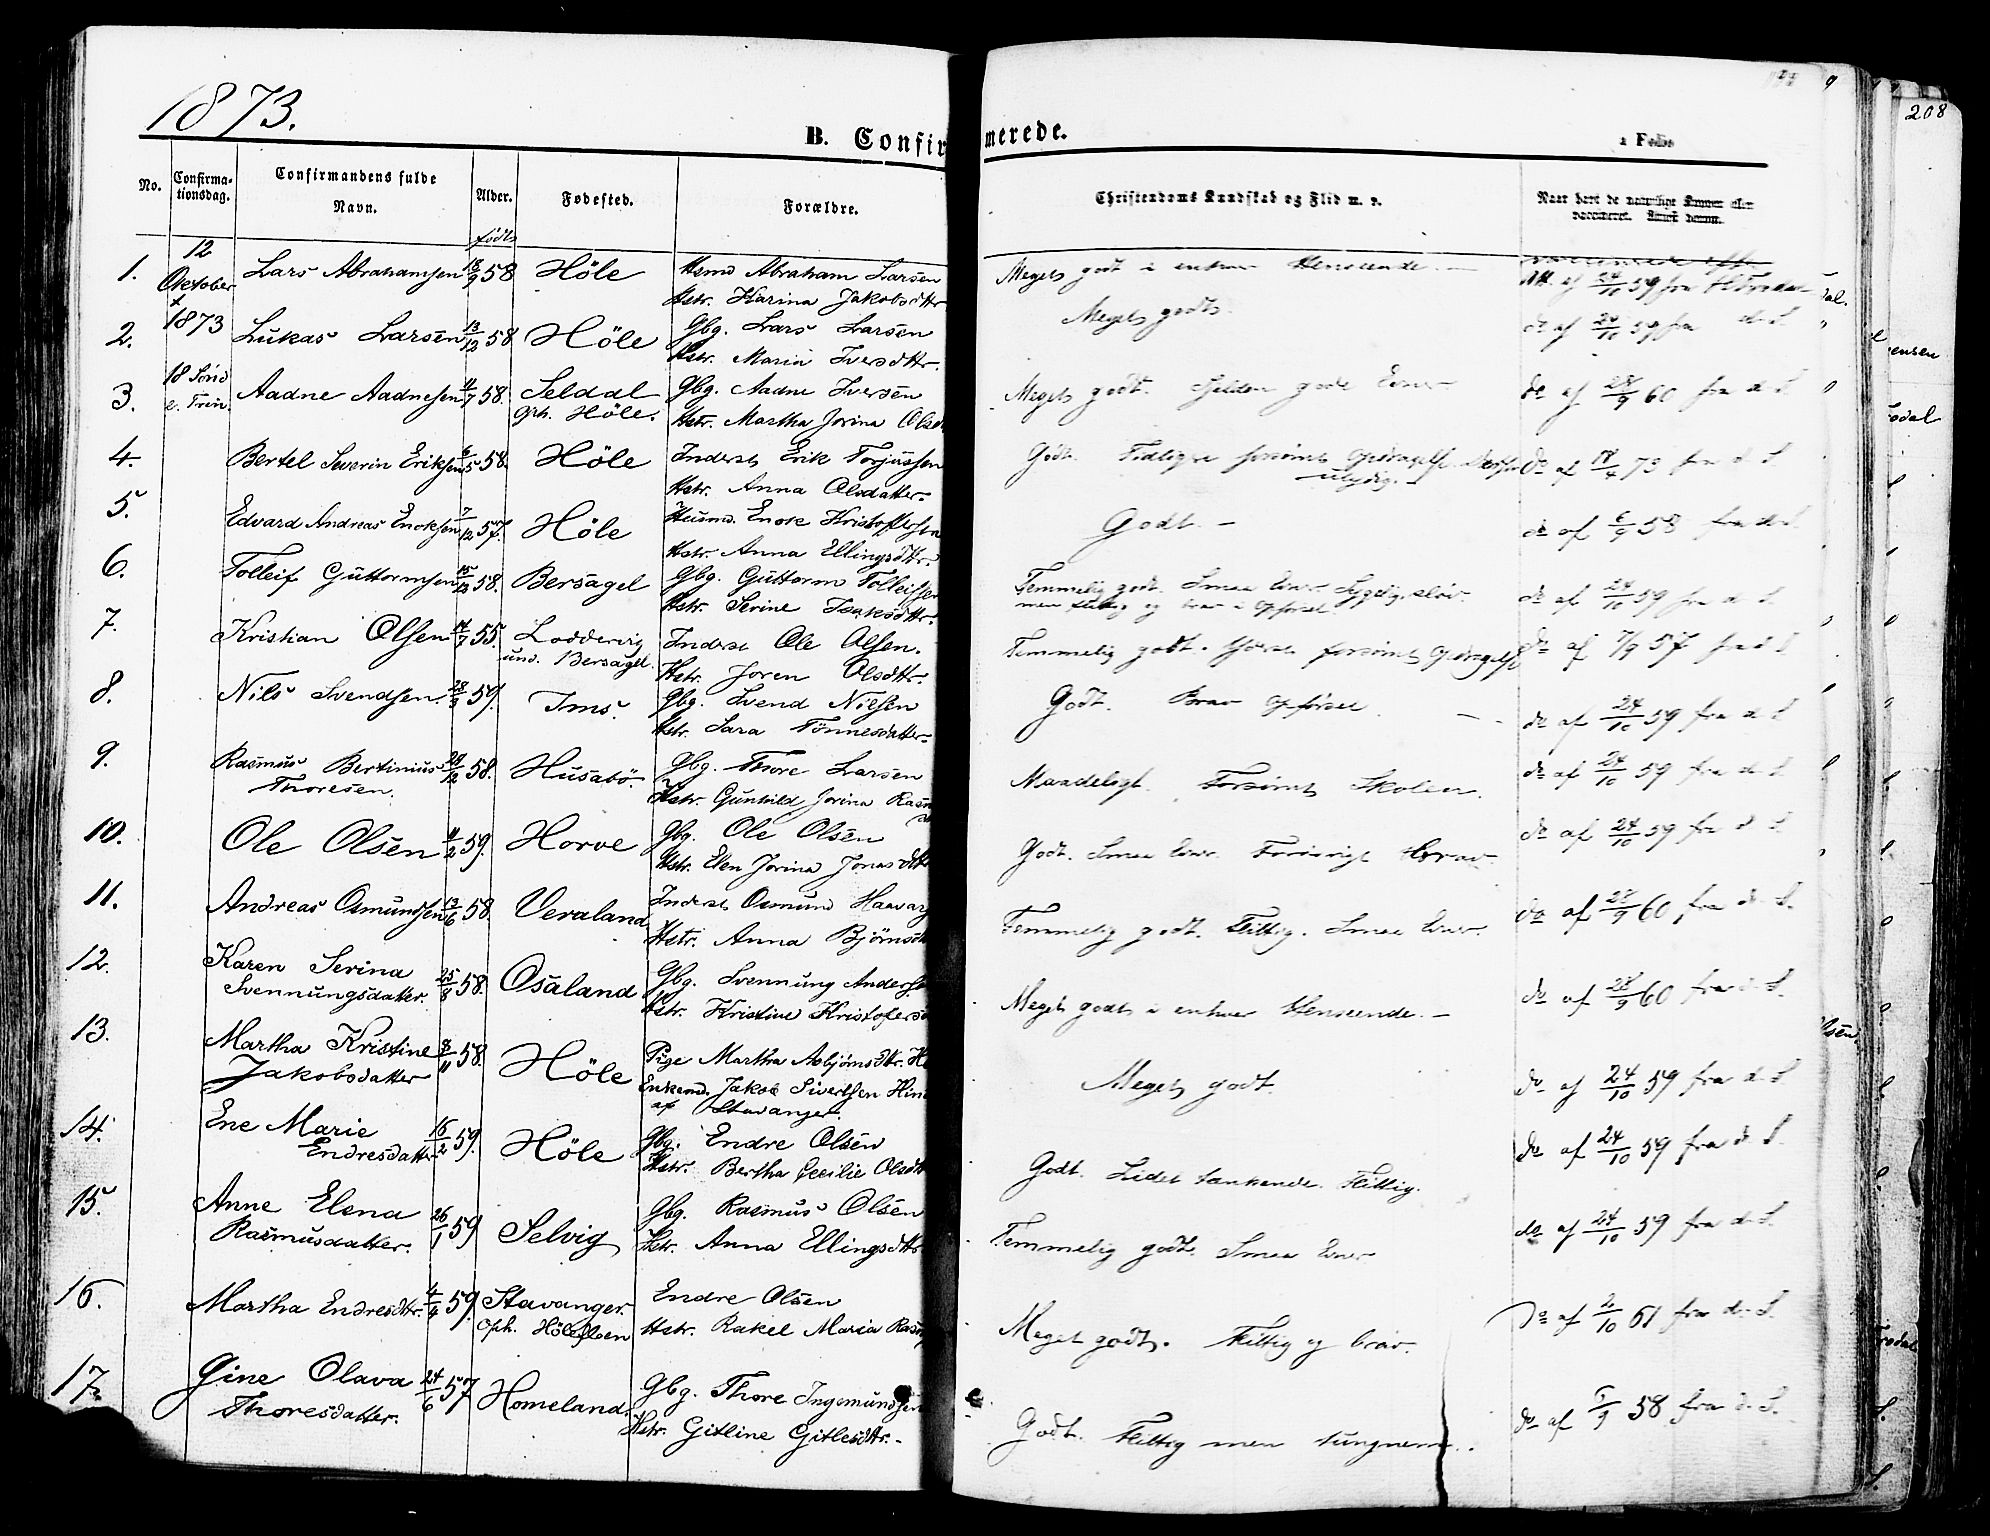 1873.
B. Confirmerede.
208
No.
Confirmationsdag.
Confirmandens fulde Navn.
Alder.
Fødested.
Forældre.
Christendoms Kundskab og Flid m. v.
fødts
1. 12 Oktober 1873 Lars Abrahamsen 18/9 58 Höle Hsmd Abraham Larsen
Hstr. Karina Jakobsdttr Meget godt i enhver Henseende. — Att. af 24/10 59 fra
2. Lukas Larsen 13/12 58 Höle Gbg. Lars Larsen
Hstr. Maria Iversdttr. Meget godt. do af 24/10 59 fra d. S.
3. 18 Sönd e. Trin. Aadne Aadnesen 11/7 58. Seldal Gbg. Aadne Iversen
oph. Höle. Hstr. Martha Jorina Meget godt. Sjelden gode Evner do af 28/9 60 fra d. S.
4. Bertel Severin Eriksen 6/5 58. Höle Inderst Erik Torjussen
Hstr. Anna Olsdatter. Godt. Tidligere forsömt Opdragelse. do af 18/4 73 fra d. S.
ulydig. —
5. Edvard Andreas Enoksen 7/12 57. Höle Husmd. Enok Kristoffersen
Hstr. Anna Ellingsdttr. Godt. — do af 6/9 58 fra d. S.
6. Tolleif Guttormsen 15/12 58. Bersagel Gbg. Guttorm Tolleifsen
Hstr. Serine Isaksdttr. Temmelig godt. Smaa Evner. Sygelig, slöv.
men flittig og brav i Opförsel do af 24/10 59 fra d. S.
7. Kristian Olsen 14/7 55. Loddervig Inderst Ole Olsen.
und. Bersagel. Hstr. Joren Olsdttr. Temmelig godt. forsömt Opdragelse do af 7/9 57 fra d. S.
8. Nils Svendsen. 59. Ims. Gbg. Svend Nilsen
Hstr. Sara Tönnesdatter. Godt. Brav Opförsel. — do af 24/10 59 fra d. S.
9. Rasmus Bertinius 58. Husabö. Gbg. Thore Larsen
Thoresen. Hstr. Gunhild Jorina Maadeligt. Forsömt Skolen. do af 24/10 59 fra d. S.
10. Ole Olsen 11/2 59. Horve Gbg. Ole Olsen
Hstr. Elen Jorina Jonasdttr Godt. Smaa Evner. Forövrigt brav. do af 24/10 59 fra d. S.
11. Andreas Osmundsen 13/6 58. Veraland Inderst Osmund
Hstr. Anna Temmelig godt. Flittig. Smaa Evner. do af 28/9 60 fra d. S.
12. Karen Serina 25/8 58. Osaland Gbg. Svennung
Svennungsdatter. Hstr. Kristine Meget godt i enhver Henseende. — do af 28/9 60 fra d. S.
13. Martha Kristine 8/11 58. Höle Pige Martha Asbjörnsdttr.
Jakobsdatter Enkemd. Jakob Sivertsen
af Stavanger. Meget godt. do af 24/10 59 fra d. S.
14. Ene Marie 16/2 59. Höle Gbg. Endre Olsen
Endresdatter Hstr. Bertha Cecilie Olsdtt Godt. Lidet tænkende. Flittig. do af 24/10 59 fra d. S.
15. Anne Elena 26/1 59 Selvig Gbg. Rasmus Olsen
Rasmusdatter. Hstr. Anna Ellingsdttr Temmelig godt. Smaa Evner do af 24/10 59 fra d. S.
16. Martha Endresdttr. 4/4 59. Stavanger. Endre Olsen
oph. Hstr. Rakel Maria Meget godt. Flittig og brav. do af 2/10 61 fra d. S.
17. Gine Olava 24/6 57 Homeland. Gbg. Thore Ingemundsen
Thoresdatter. Hstr. Gitline Gitlesdttr. — Godt. Flittig men tungnem. do af 58 fra d. S.